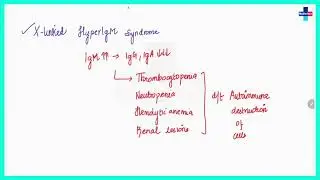 ✓ X-linked HyperIgM Syndrome
IgM ↑↑ → IgG, IgA ↓↓↓
→ Thrombocytopenia
Neutropenia
Hemolytic anemia
Renal lesions
d/t Autoimmune
destruction
of
cells